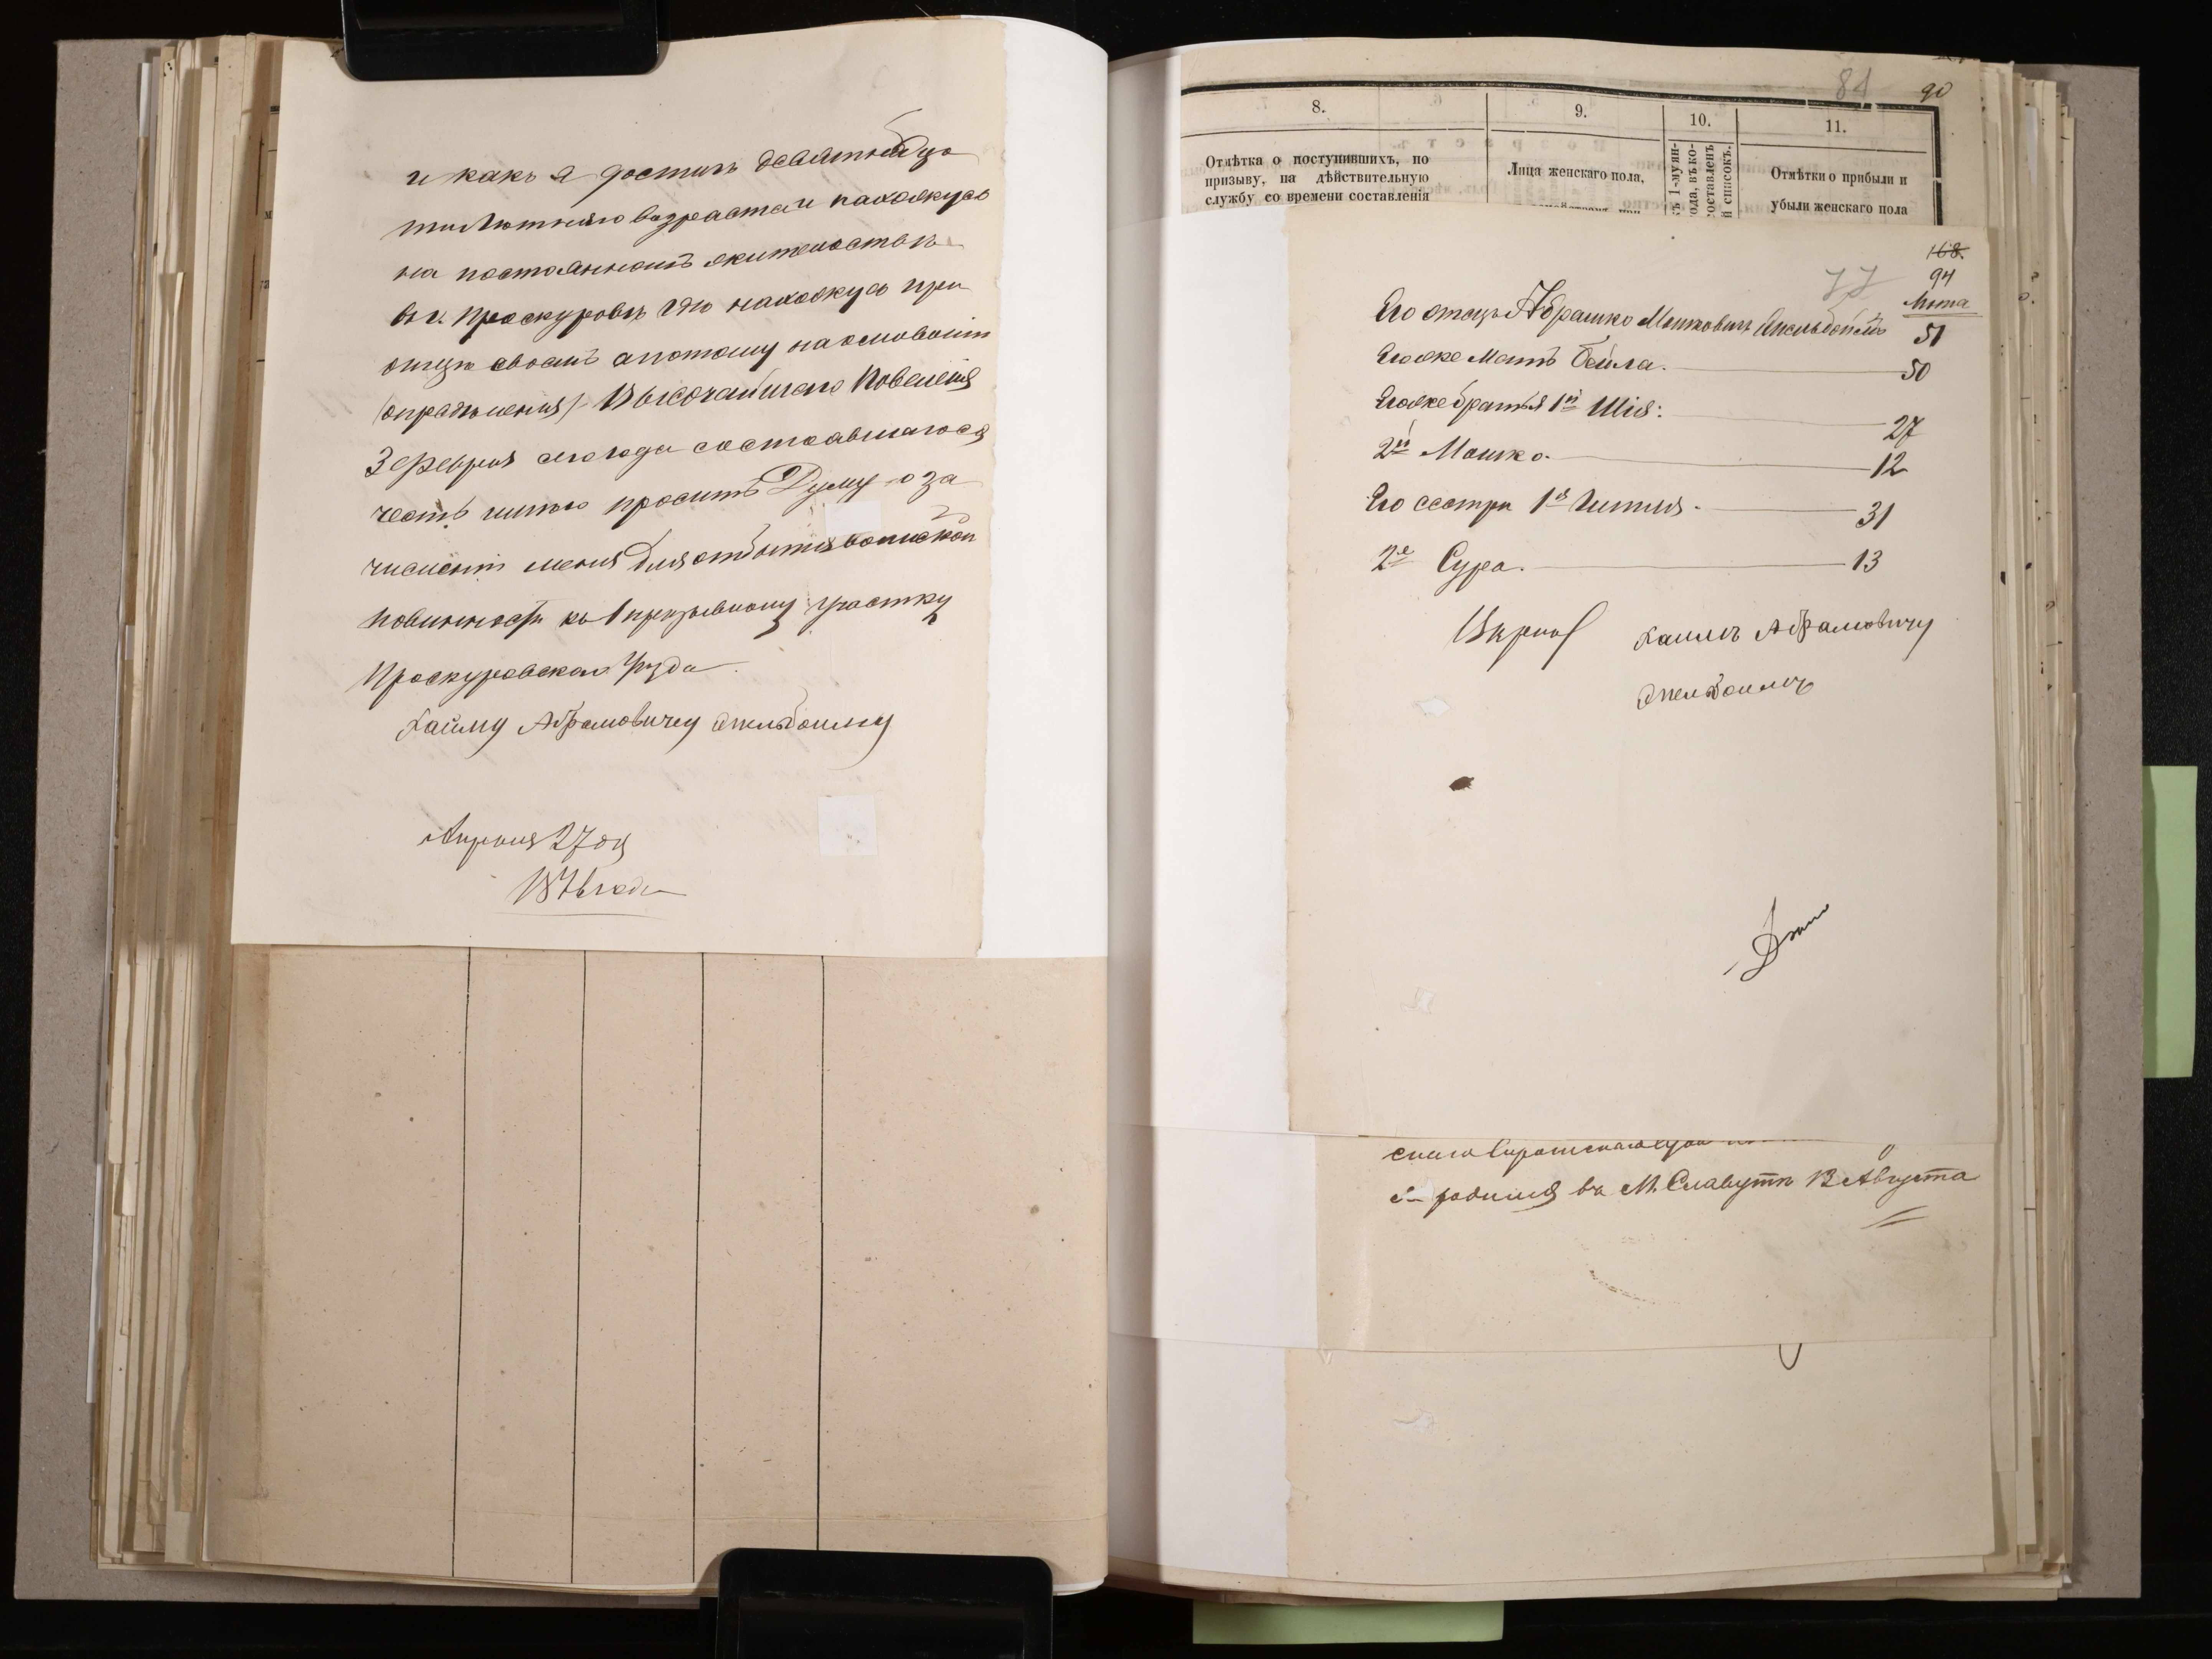 и какъ я достигъ двадцати
лѣтняго возраста и нахожусь
на постоянномъ жительствѣ
въ г. Проскуровѣ гдѣ нахожусь при
отцѣ своемъ а потому на основаніи
Высочайшего Повеленія
3 Февраля сего года состоявшагося
честь имѣю просить Думу о за
численіи меня для отбытія воинской
повинности къ 1 призывному участку
Проскуровскаго Уѣзда
Хаиму Абрамовичу
Апреля 27 дня
187 года
84 90
8. 9. 10. 11.
Отмѣтка о поступившихъ, по
призыву, на дѣйствительную
службу со времени составленія
Лица женскаго пола,
Отмѣтки о прибыли и
убыли женскаго пола
168.
77 94
Лѣта
Его отецъ Абрашко Мошковичъ 51
Его же мать Бейла. 50
Его же братья 1й Шія: 27
2й Мошко. 12
Его сестры 1я 31
2я Сура. 13
Хаимъ Абрамовичу
родился въ М. Славутѣ 12 Августа